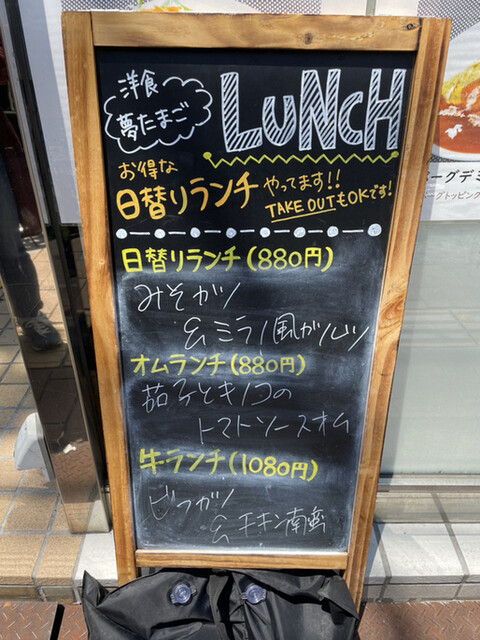 洋食
夢たまご
LUNCH
お得な
日替りランチ やってます!!
TAKE OUTもOKです!
日替りランチ(880円)
みそカツ
&ミラノ風カツレツ
オムランチ(880円)
茄子ときのこの
トマトソースオム
牛ランチ(1080円)
ビフカツ
&チキン南蛮
バーグデミ
バーグトッピング